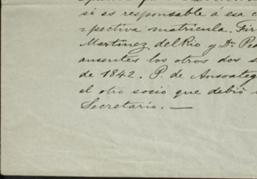 si es responsable á esa c
spectiva matricula. Fir
Martinez del Rio y Dn Ped
ausentes los otros dos s
de 1842. P. de Ansoateg
el otro socio que debió
Secretario. —